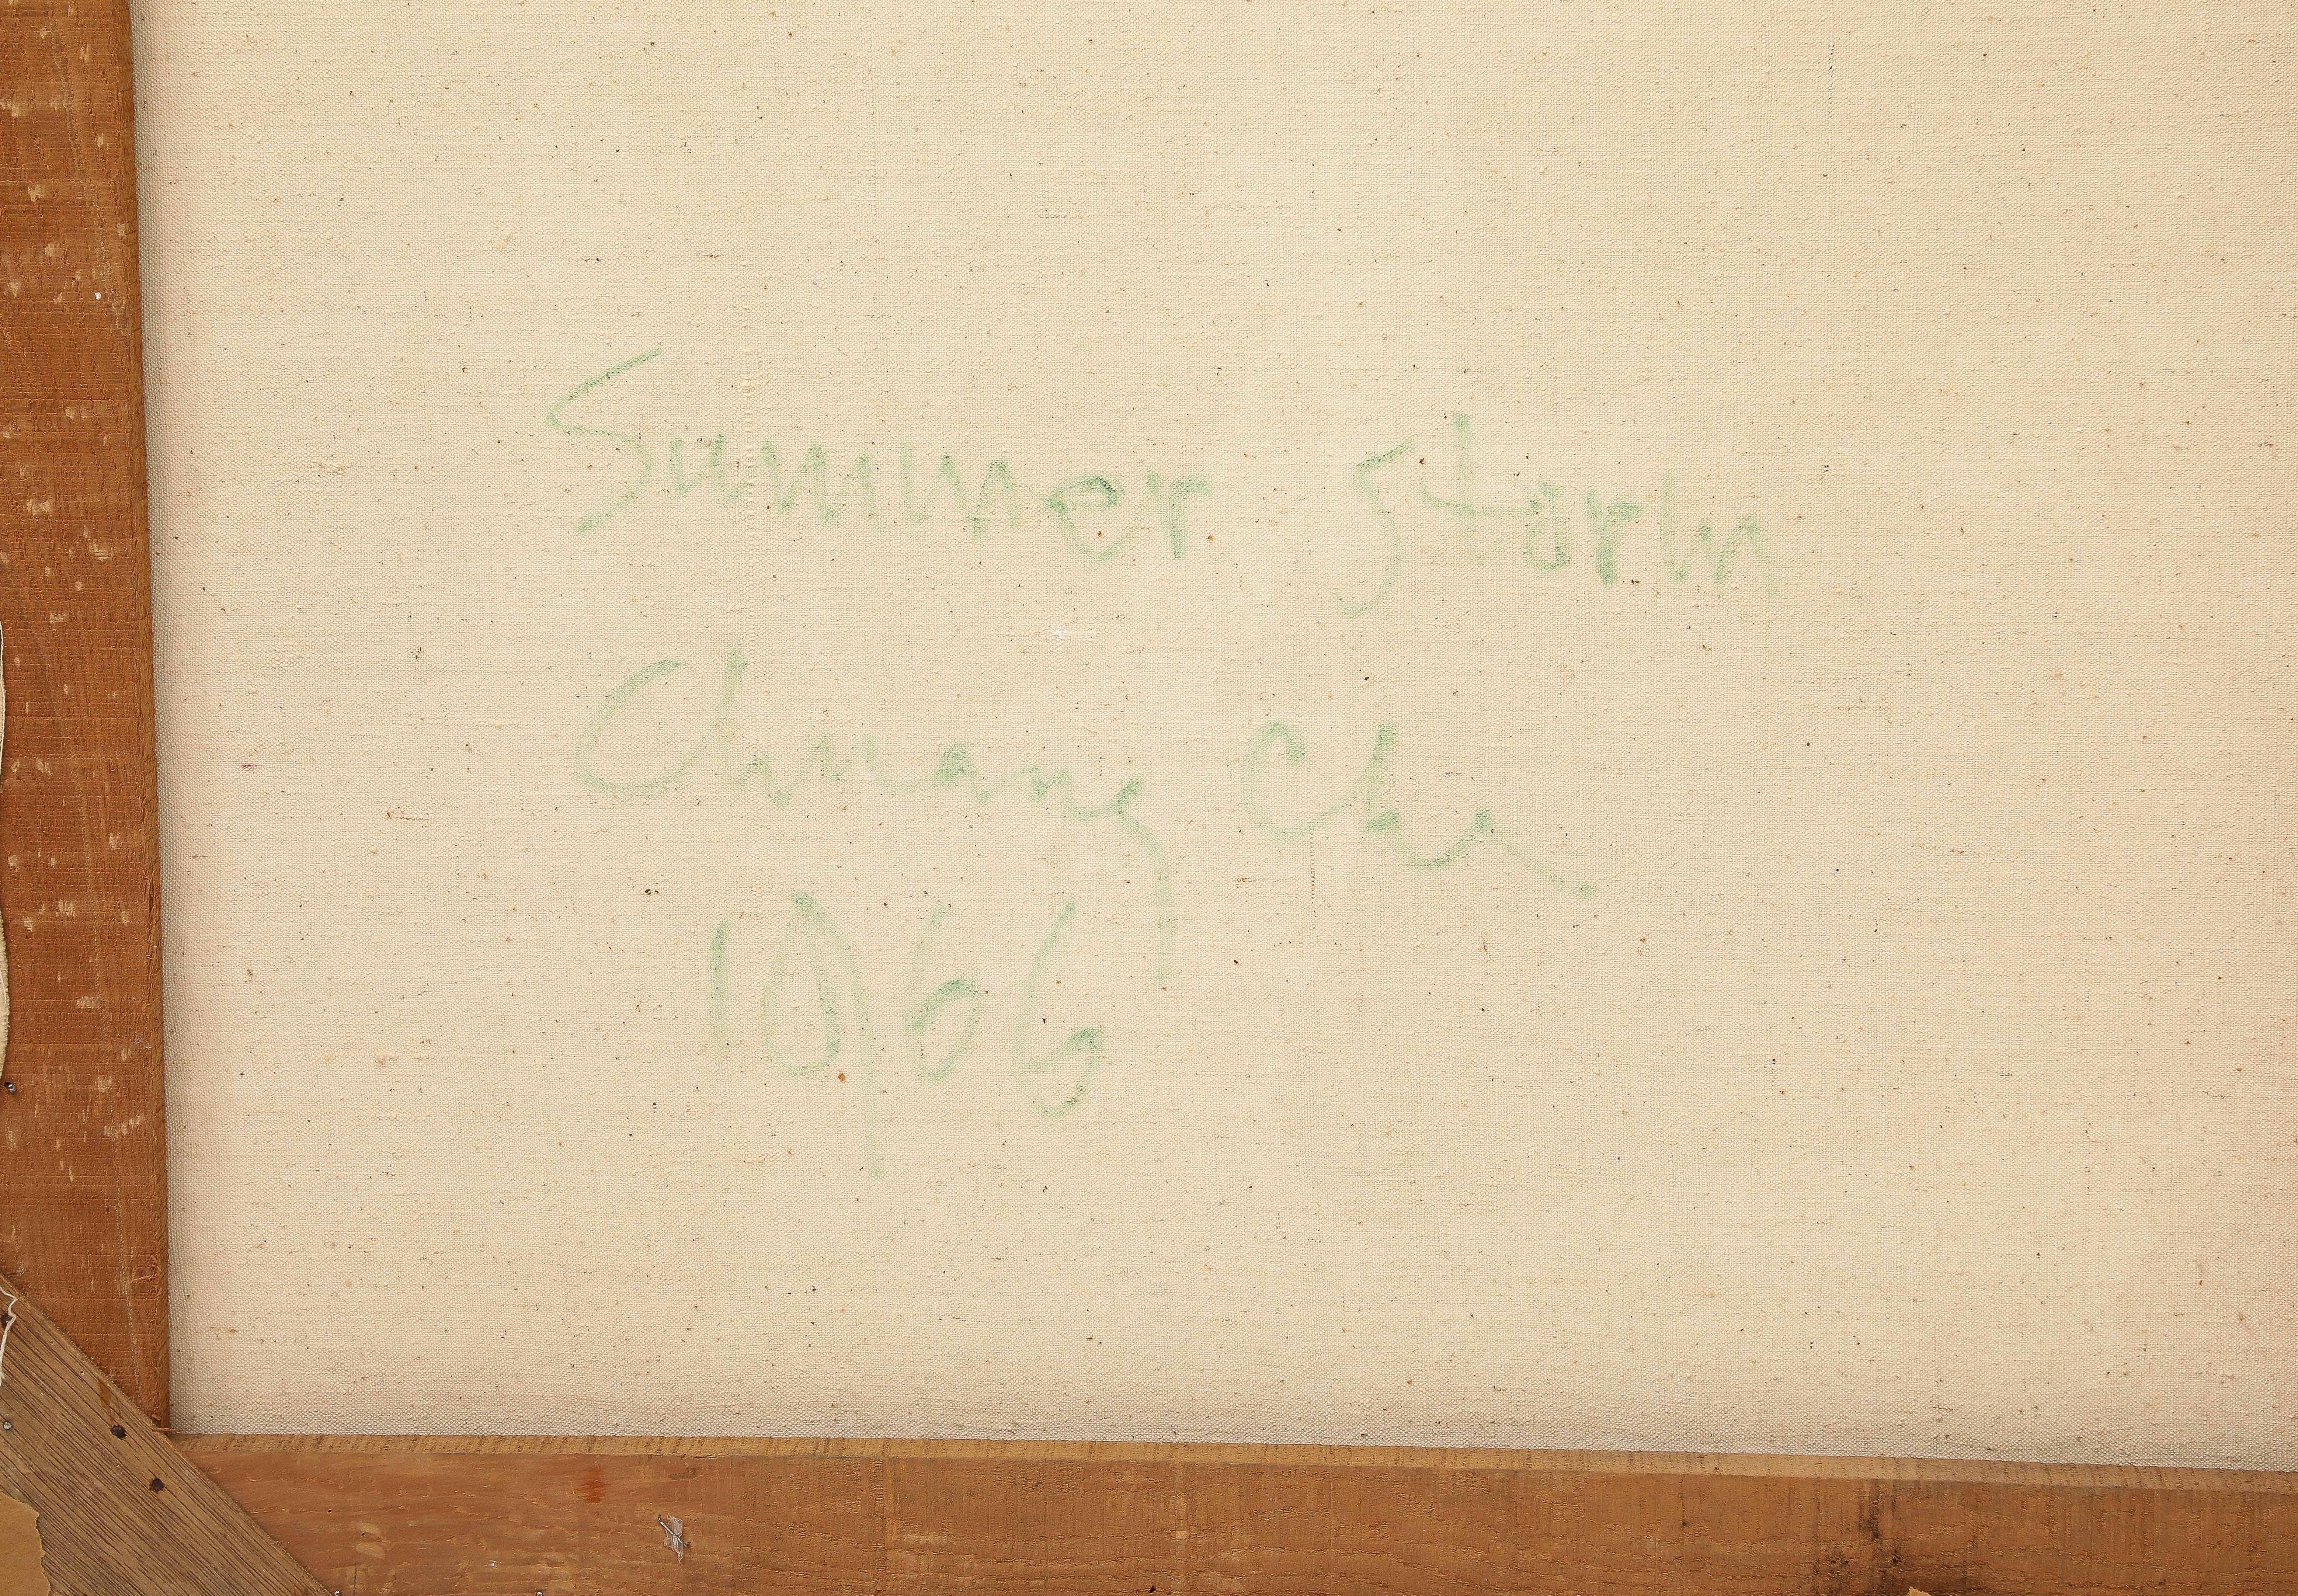 Summer Storm
Chuang Che
1966